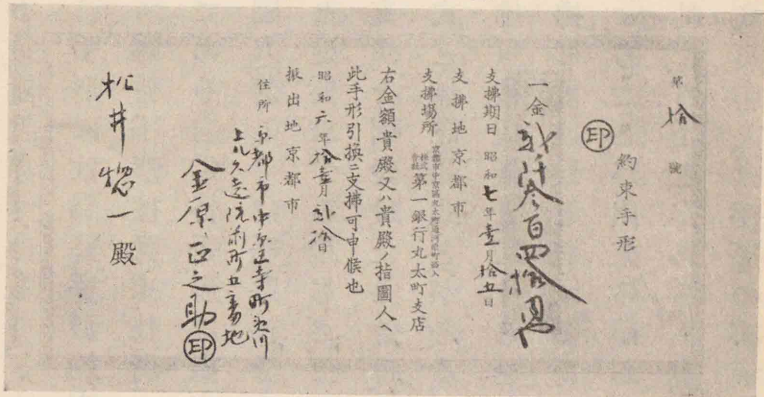 第 拾 號
約束手形
印
一金 貳阡參百四拾圓也
支拂期日 昭和七年壹月拾五日
支拂地 京都市
支拂場所 京都市中京區丸太町通河原町西入 株式會社 第一銀行丸太町支店
右金額貴殿又ハ貴殿ノ指圖人ヘ
此手形引換ニ支拂可申候也
昭和六年拾壹月
振出地 京都市
住所 京都市中京區寺町夷川
上ル久遠院前町五番地
金原正之助 印
松井惣一殿